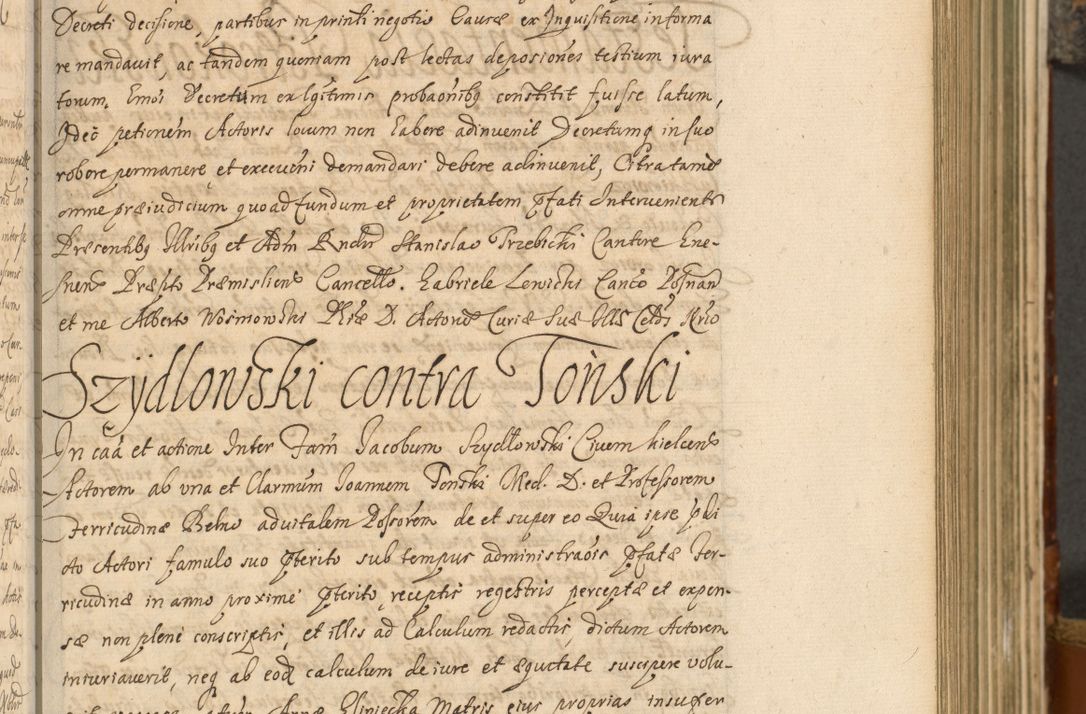 Decreti decisione, partibus in printi negotio Causæ ex Inquisitione informa
re mandavit, ac tandem quoniam post lectas deposiones testium iura
torum, Emoi Decretum ex lgitimis probaonibq constitit fuisse latum,
Ideo petionem Actoris locum non habere adinvenit Decretumq in suo
robore permanere et execuoni demandari debere adinvenit, Citra tamē
omne præiudicium quoad fundum et proprietatem pfati Intervenients
Præsentibq Illribq et Adm Rndis Stanislao Trzebicki Cantore Gne-
snens Præpto Præmisliens Cancello. Gabriele Lewicki Canco Posnan
et me Alberto Wosinowski Phiæ D. Actorū Curiæ Suæ Illæ Celsis Nrio
Szÿdlowski contra Toński
In caā et actione Inter Fam Jacobum Szydłowski Civem kielcens
Actorem ab una et Clarmum Ioannem Tonski Med. D. et Professorem
Terricudinæ Belno advitalem Possorem de et super eo Quia ipse pbi
cto Actori famulo suo pterito sub tempus administraois pfatæ Ter-
ricudinæ in anno proxime pterito, receptis regestris perceptæ et expen-
sæ non plene conscriptis, et illis ad Calculum redactis, dictum Actorem
iniuriaverit, neq ab eoq calculum de iure et æquctate suscipere volu-
Annæ Gliniecka Matris eius proprias insuper